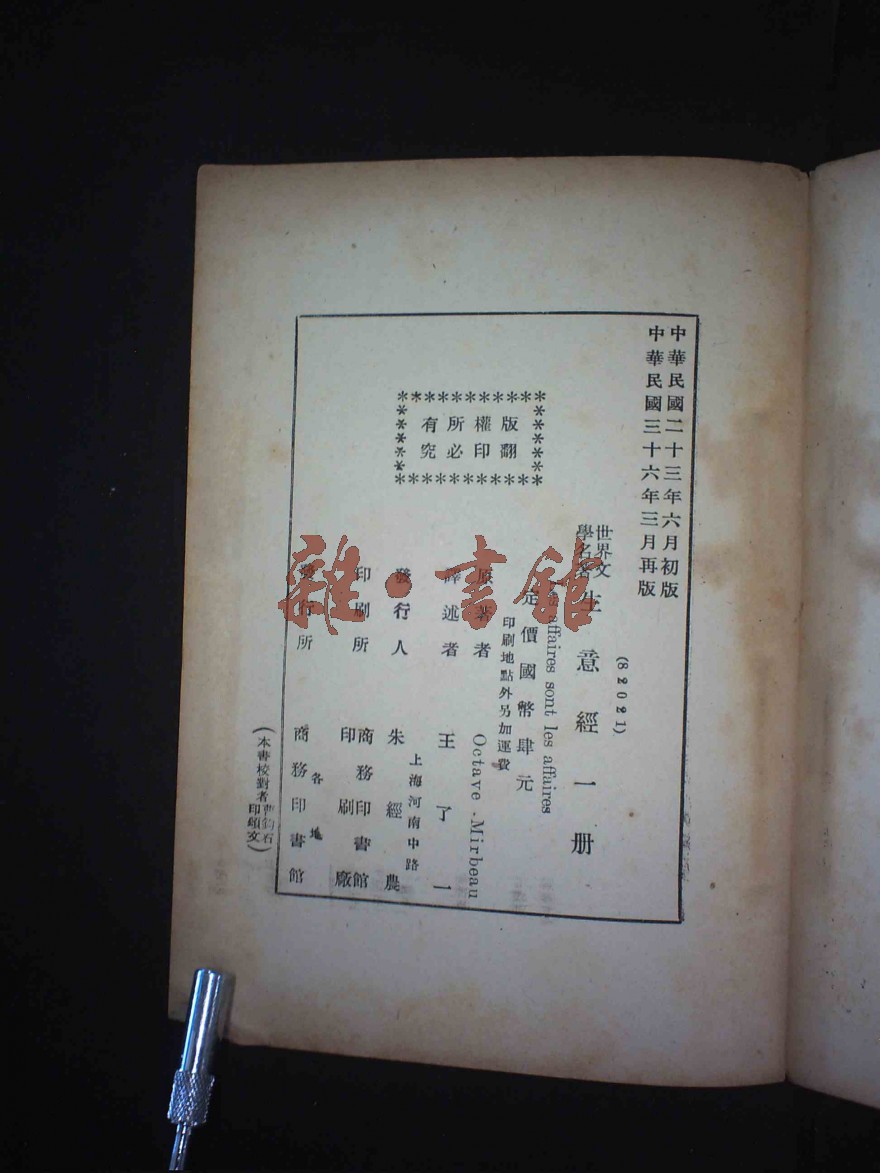 中華民國二十三年六月初版
中華民國三十六年三月再版
(82021)
世界文學名著 生意經一册
Les affaires sont les affaires
定價國幣肆元
印刷地點外另加運費
原著者 Octave Mirbeau
譯述者 王了一
發行人 朱經農
上海河南中路
印刷所 商務印書館印刷廠
發行所 商務印書館
各地
版權所有
翻印必究
(本書校對者
雜·書館